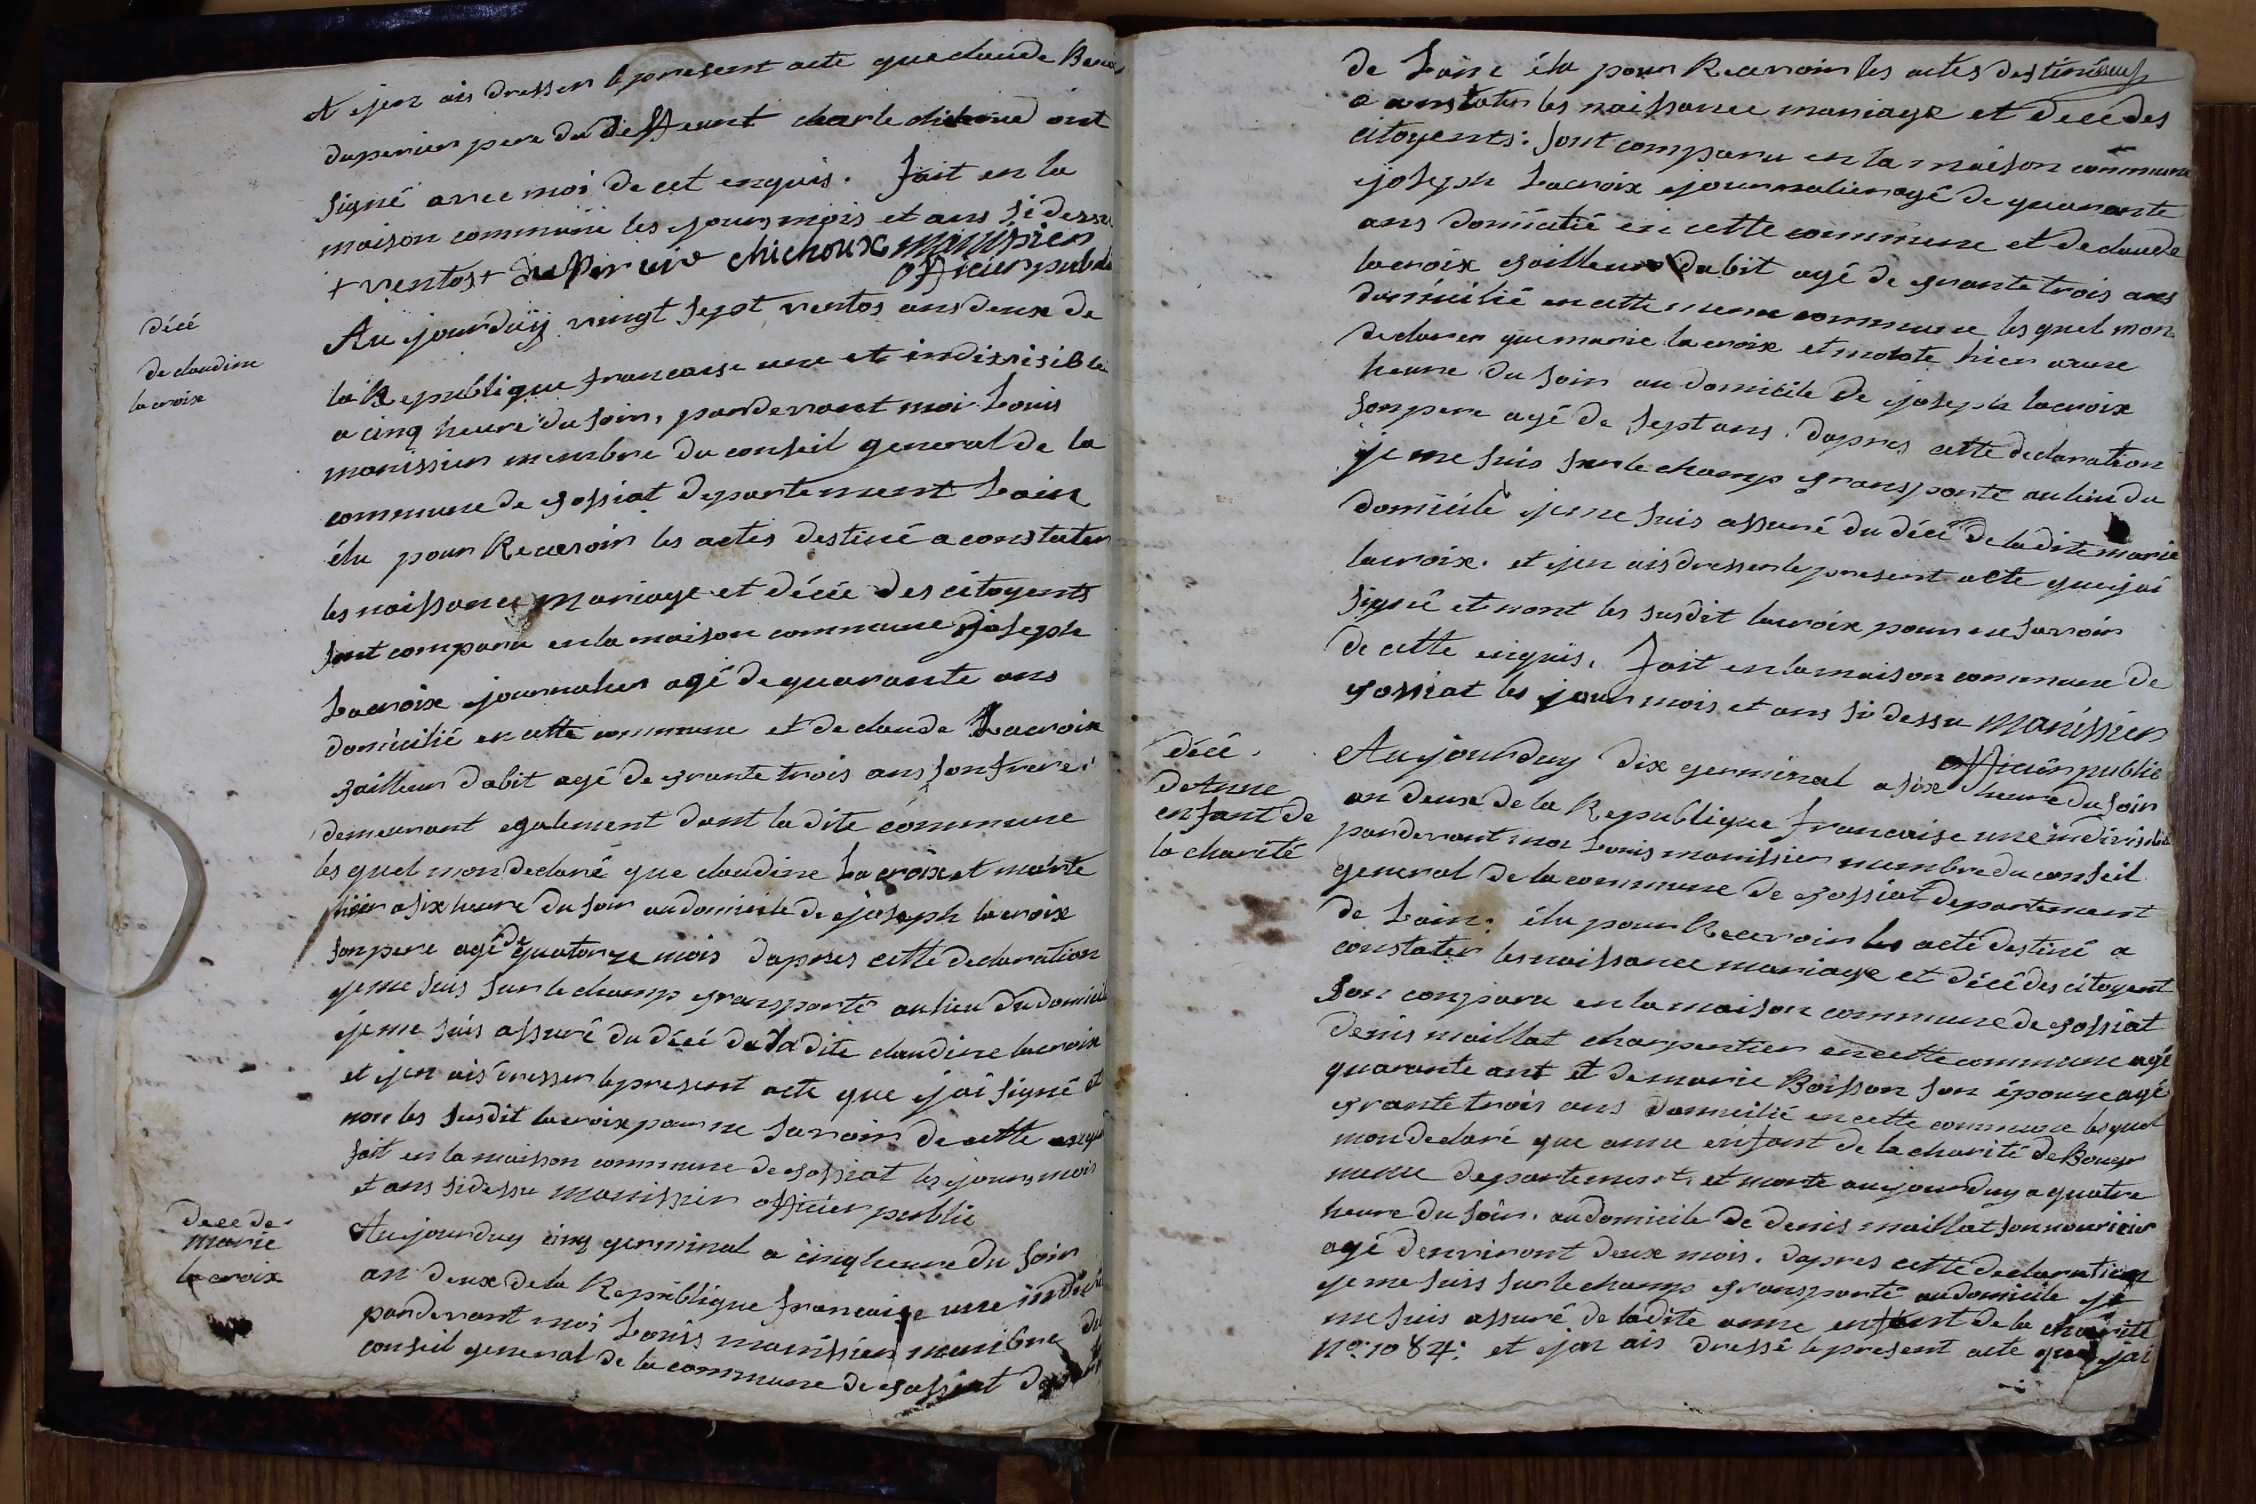 et jen ais dresser le present acte que claude
duperier pere du deffeunt charle ont
signé avec moi de cet enquis. fait en la
maison commune les jours mois et ans si dessu
+ ventos + chichoux manissier
officier public
décé
de claudine
la croix
Au jourduÿ vingt sept ventos ans deux de
la Republique francaise une et indivisible
a cinq heure du soir, pardevant moi Louis
manissier membre du conseil general de la
commune de jossiat departement Lain
élu pour Recevoir les actes destiné a constater
les naissance mariage et décée des citoyents
sont comparu en la maison commune joseph
Lacroix journalier agé de quarante ans
domicilié en cette commune et de claude Lacroix
tailleur dabit agé de trante trois ans son frere
demeurant egalement dant la dite commune
les quel mon declaré que claudine Lacroix et morte
hier a six heure du soir au domicile de joseph lacroix
son pere agé de quatorze mois dapres cette declaration
je me suis sur le champ transporté au lieu du domicile
je me suis assuré du décé de la dite claudine lacroix
et jen ais dresser le present acte que jai signé et
non les susdit lacroix pour ne savoir de cette enquis
fait en la maison commune de jossiat les jours mois
et ans si dessu manissier officier public
decé de
marie
lacroix
Aujourduy cinq germinal a cinq heure du soir
an deux de la Republique francaise une
pardevant moi Louis manissier membre du
conseil general de la commune de jossiat
de Lain élu pour Recevoir les actes destiné
a constater les naissance mariage et decé des
citoyents: sont comparu en la maison commune
joseph Lacroix journalier agé de quarante
ans domicilié en cette commune et de claude
lacroix tailleur dabit agé de trante trois ans
domicilié en cette meme commune les quel mon
declarer que marie lacroix et morte hier a une
heure du soir au domicile de joseph lacroix
son pere agé de sept ans. dapres cette declaration
je me suis sur le champ transporté au lieu du
domicile je me suis assuré du décé de la dite marie
lacroix. et jen ais dresser le present acte que jai
signé et nont les susdit lacroix pour ne savoir
de cette enquis. fait en la maison commune de
jossiat les jour mois et ans si dessu manissier
officier public
décé.
de Anne
enfant de
la charité
Aujourduy dix germinal a six heure du soir
an deux de la Republique francaise une indivisible
pardevant moi Louis manissier membre du conseil
general de la commune de jossiat departement
de Lain: élu pour Recevoir les acte destiné a
constater les naissance mariage et décé des citoyent
son conparu en la maison commune de jossiat
denis maillat charpentier en cette commune agé
quarante ant et de marie Boisson son épouze agé
trante trois ans domicilié en cette commune les quel
mon declaré que anne enfant de la charité de Bourg
meme departement. et morte aujourduy a quatre
heure du soir. au domicile de denis maillat son nouricier
agé denviront deux mois. dapres cette declaration
je me suis sur le champ transporté au domicile je
me suis assuré de la dite anne enfant de la charité
No: 1084: et jen ais dressé le present acte que jai